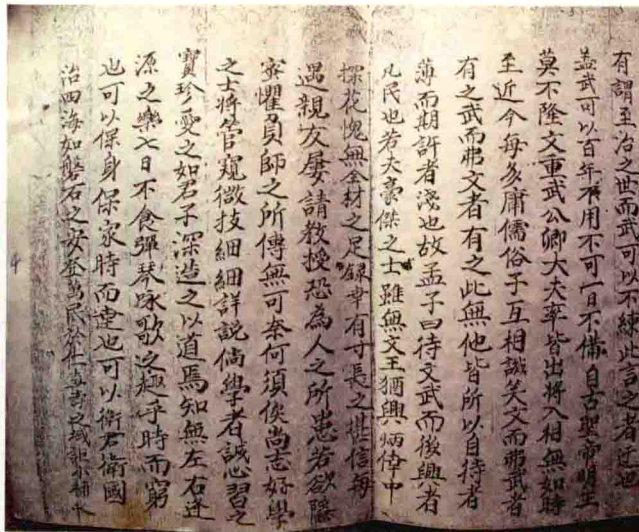 有謂至治之世而武可以不練此言之者迂也
盖武可以百年不用不可一日不備自古聖帝明王
莫不隆文重武公卿大夫率皆出將入相無如時
至近今每多庸儒俗子互相譏笑文而弗武者
有之武而弗文者有之此無他皆所以自待者
薄而期許者淺也故孟子曰待文武而後興者
凡民也若夫豪傑之士雖無文王猶興炳偉中
探花愧無全材之足錄幸有寸長之堪信每
遇親友屡請教授恐為人之所患若欲隱
密懼負師之所傳無可奈何須俟尚志好學
之士將管窺微技細細詳説倘學者誠心習之
寶珍愛之如君子深造之以道焉知無左右逢
源之樂七日不食彈琴詠歌之趣乎時而窮
也可以保身保家時而達也可以衛君衛國
治四海如磐石之安登萬民於仁壽之域詎小補